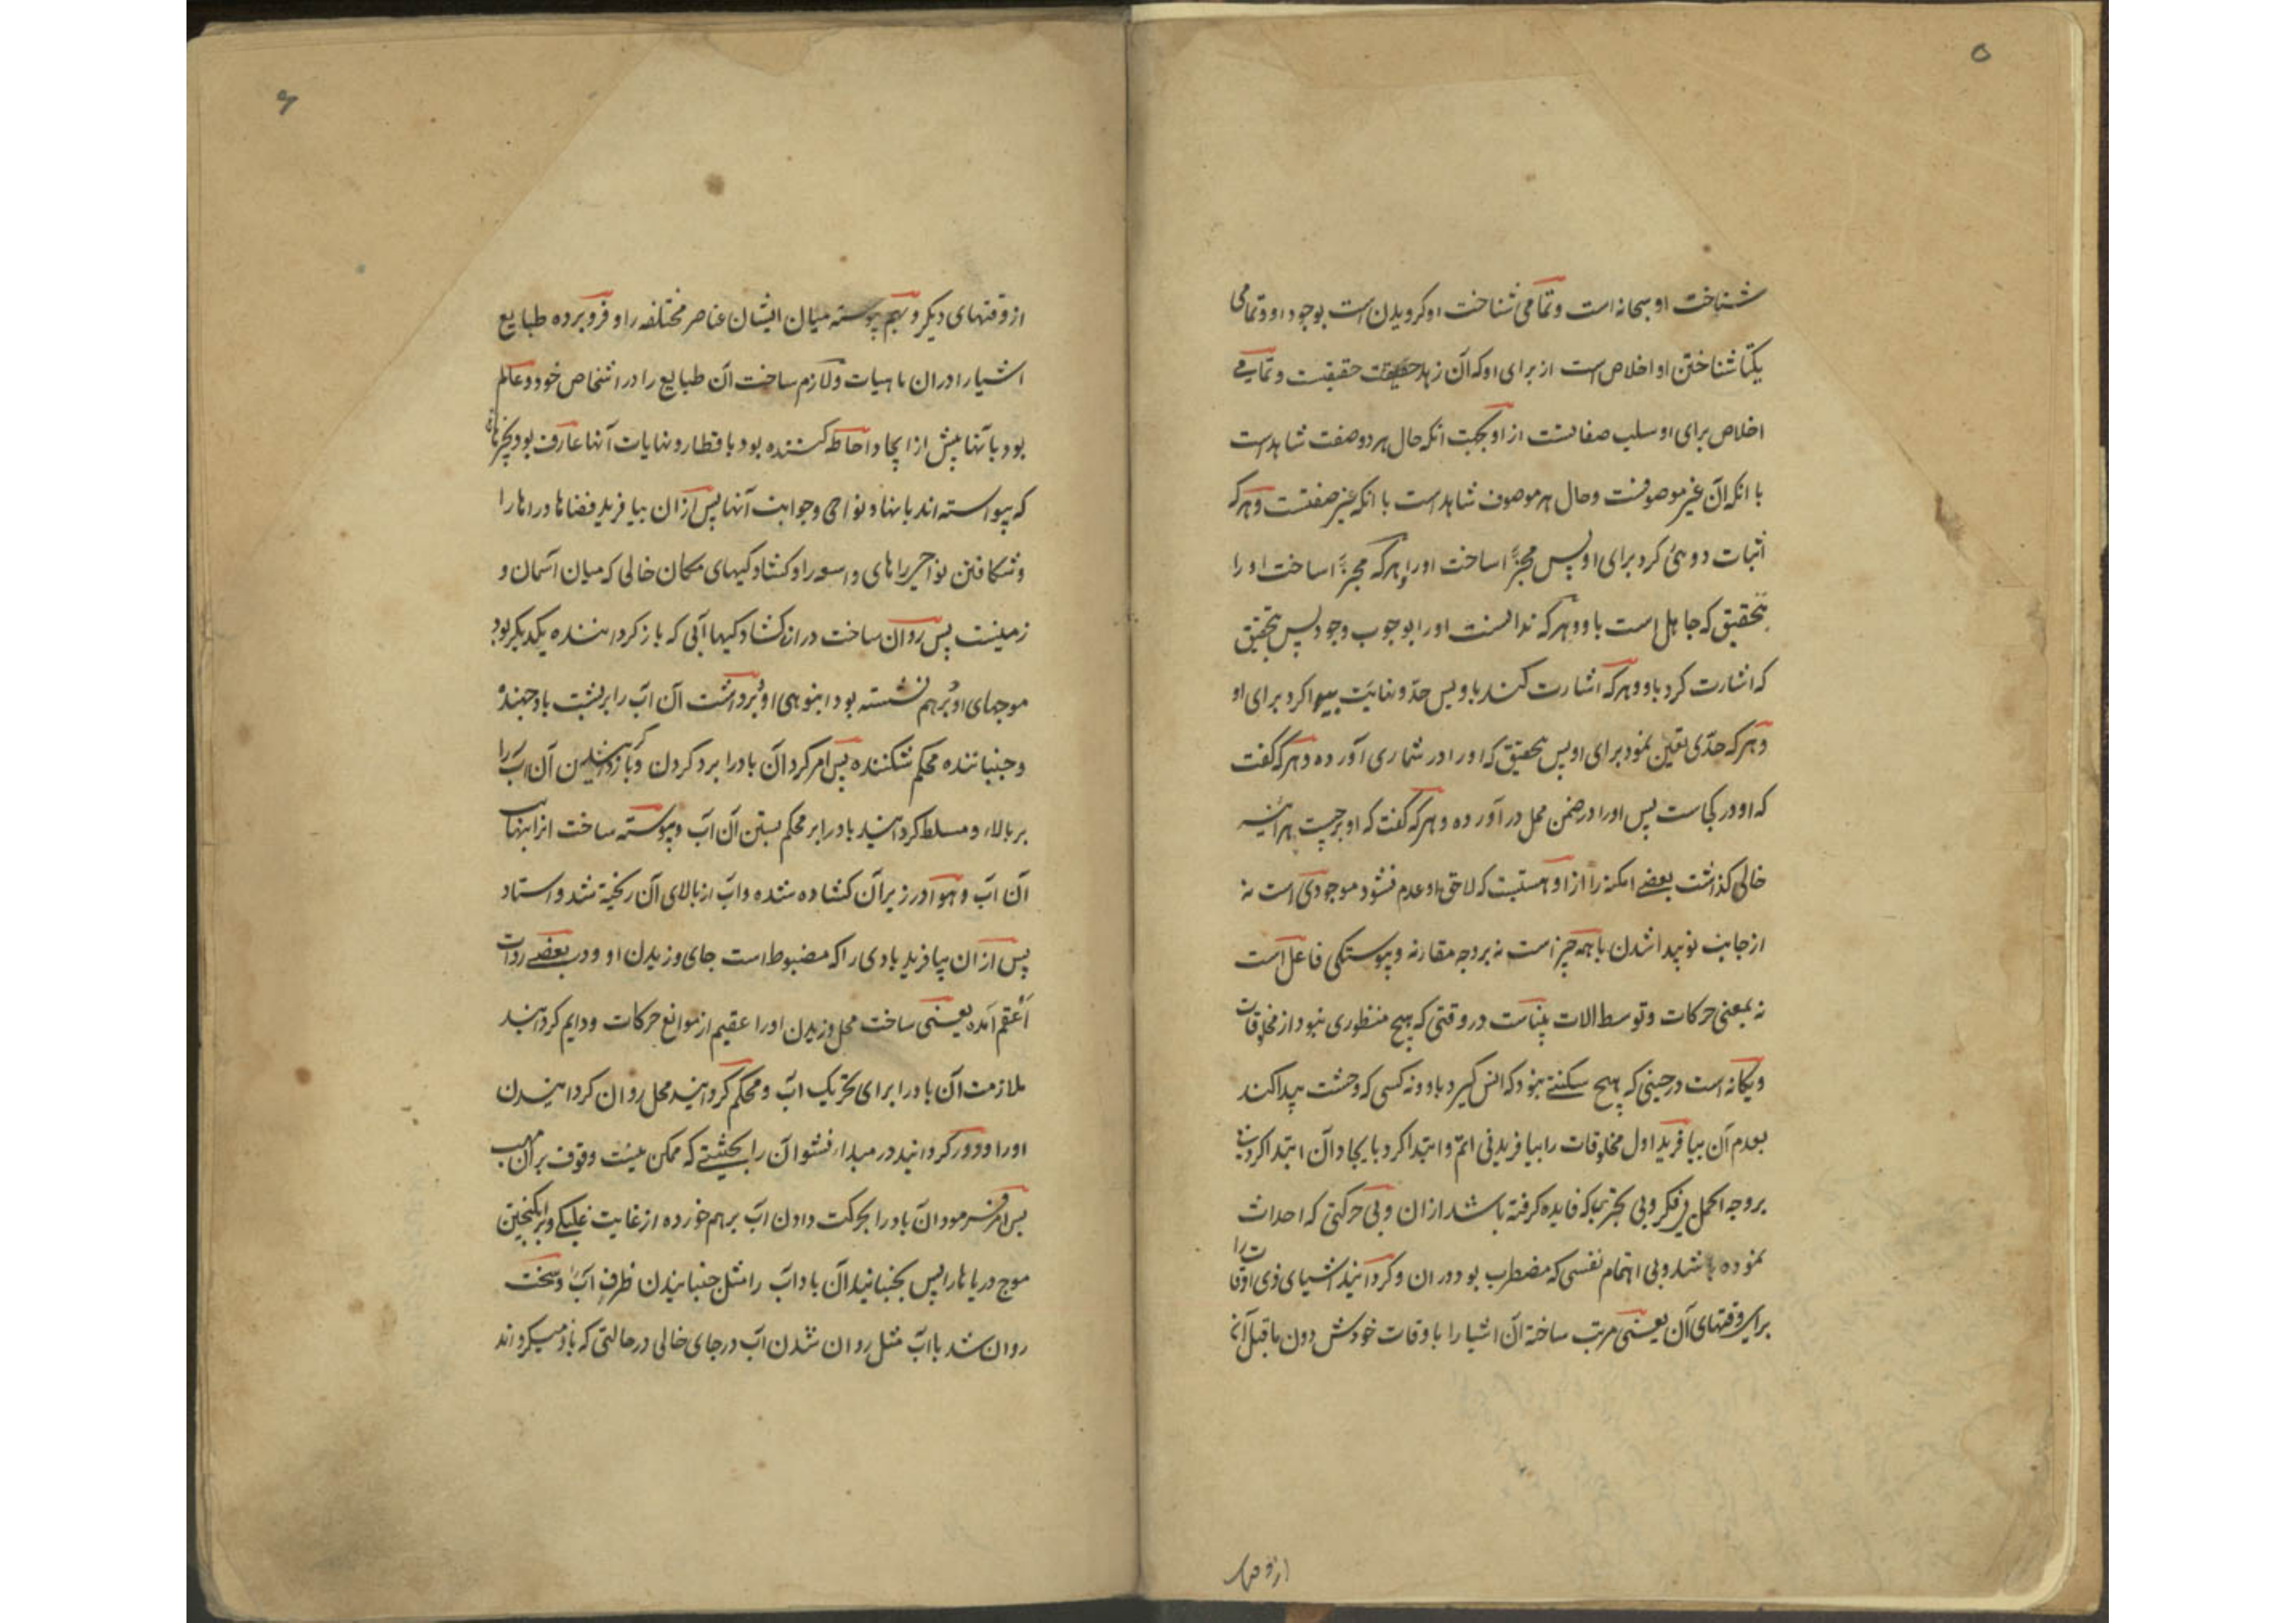 ۵
شناخت او سبحانه است و تمامی شناخت او کرویدن است بوجود او و تمامی
یکتا شناختن او اخلاص است از برای او که آن زهد حقیقت و تمامی
اخلاص برای او سلب صفاتست از او بجهت انکه حال هر دو صفت شاهد است
با انکه آن غیر موصوفست و حال هر موصوف شاهد است با انکه غیر صفتست و هر که
اثبات دوئی کرد برای او پس مجزّا ساخت او را و هر که مجزّا ساخت او را
بتحقیق که جاهل است باو و هر که ندانست او را بوجوب وجود پس بتحقیق
که اشارت کرد باو و هر که اشارت کند باو پس حدّ و نهایت پیدا کرد برای او
و هر که حدّی تعین نمود برای او پس بتحقیق که او را در شماری آورده و هر که گفت
که او در کجاست پس او را در ضمن محل در آورده و هر که گفت که او بر چیست هر آینه
خالی کذاشت بعضے امکنه را از او هستیست که لاحق او عدم نشود موجودی است نه
از جانب نو پیدا شدن با همه چیز است نه بر وجه مقارنه و پیوستگی فاعل است
نه بمعنی حرکات و توسط الات بیناست در وقتی که هیچ منظوری نبود از مخلوقات
و یکانه است در حینی که هیچ سکنے نبود که انس گیرد باو و نه کسی که وحشت پیدا کند
بعدم آن بیافرید اول مخلوقات را بیافریدنی اتم و ابتدا کرد بایجاد آن ابتدا کردنی
بر وجه اکمل بی فکر و بی تجربه که فایده کرفته باشد از ان و بی حرکتی که احداث
نموده باشد و بی اهتمام نفسی که مضطرب بود در ان و کردانید اشیای ذی اوقات را
برای وقتهای آن یعنی مرتب ساخته آن اشیا را باوقات خودش دون ماقبل آن
از وقتها
۶
از وقتهای دیکر و بهم پیوسته میان ایشان عناصر مختلفه را و فرو برده طبایع
اشیا را در ان ماهیات و لازم ساخت آن طبایع را در اشخاص خود و عالم
بود بآنها پیش از ایجاد و احاطه کننده بود باقطار و نهایات آنها عارف بود بچیزهائی
که پیواسته اند بانها و نواحی و جوانب آنها پس از ان بیافرید فضاها و راهها را
و شکافتن نواحی راهای واسعه را و کشادکیهای مکان خالی که میان اسمان و
زمینست پس روان ساخت در ان کشادکیها آبی که باز کرداننده یکدیکر بود
موجهای او بر هم نشسته بود انبوهی او برداشت آن آب را بر پشت باد جهنده
و جنباننده محکم شکننده پس امر کرد آن باد را برد کردن و باز کردانیدن آن آب را
بر بالا و مسلط کردانید باد را بر محکم بستن آن آب و پیوسته ساخت انرا بنهایت
آن آب و هوا در زیر آن کشاده شده و آب از بالای آن ریخته شد و استاد
پس از ان بیافرید بادی را که مضبوط است جای وزیدن او و در بعضے روایت
اَعْقَم آمده یعنی ساخت محل وزیدن او را عقیم از موانع حرکات و دایم کردانید
ملازمت آن باد را برای تحریک آب و محکم کردانید محل روان کردانیدن
او را و دور کردانید در مبدا نشو آن را بحیثیتے که ممکن نیست وقوف بر آن
پس امر فرمود آن باد را بحرکت دادن آب برهم خورده از غایت غلبکی و برانکیختن
موج دریاها را پس بجنبانید آن باد آب را مثل جنبانیدن ظرف آب و سخت
روان شد باآب مثل روان شدن آب در جای خالی در حالتی که باز میکرداند